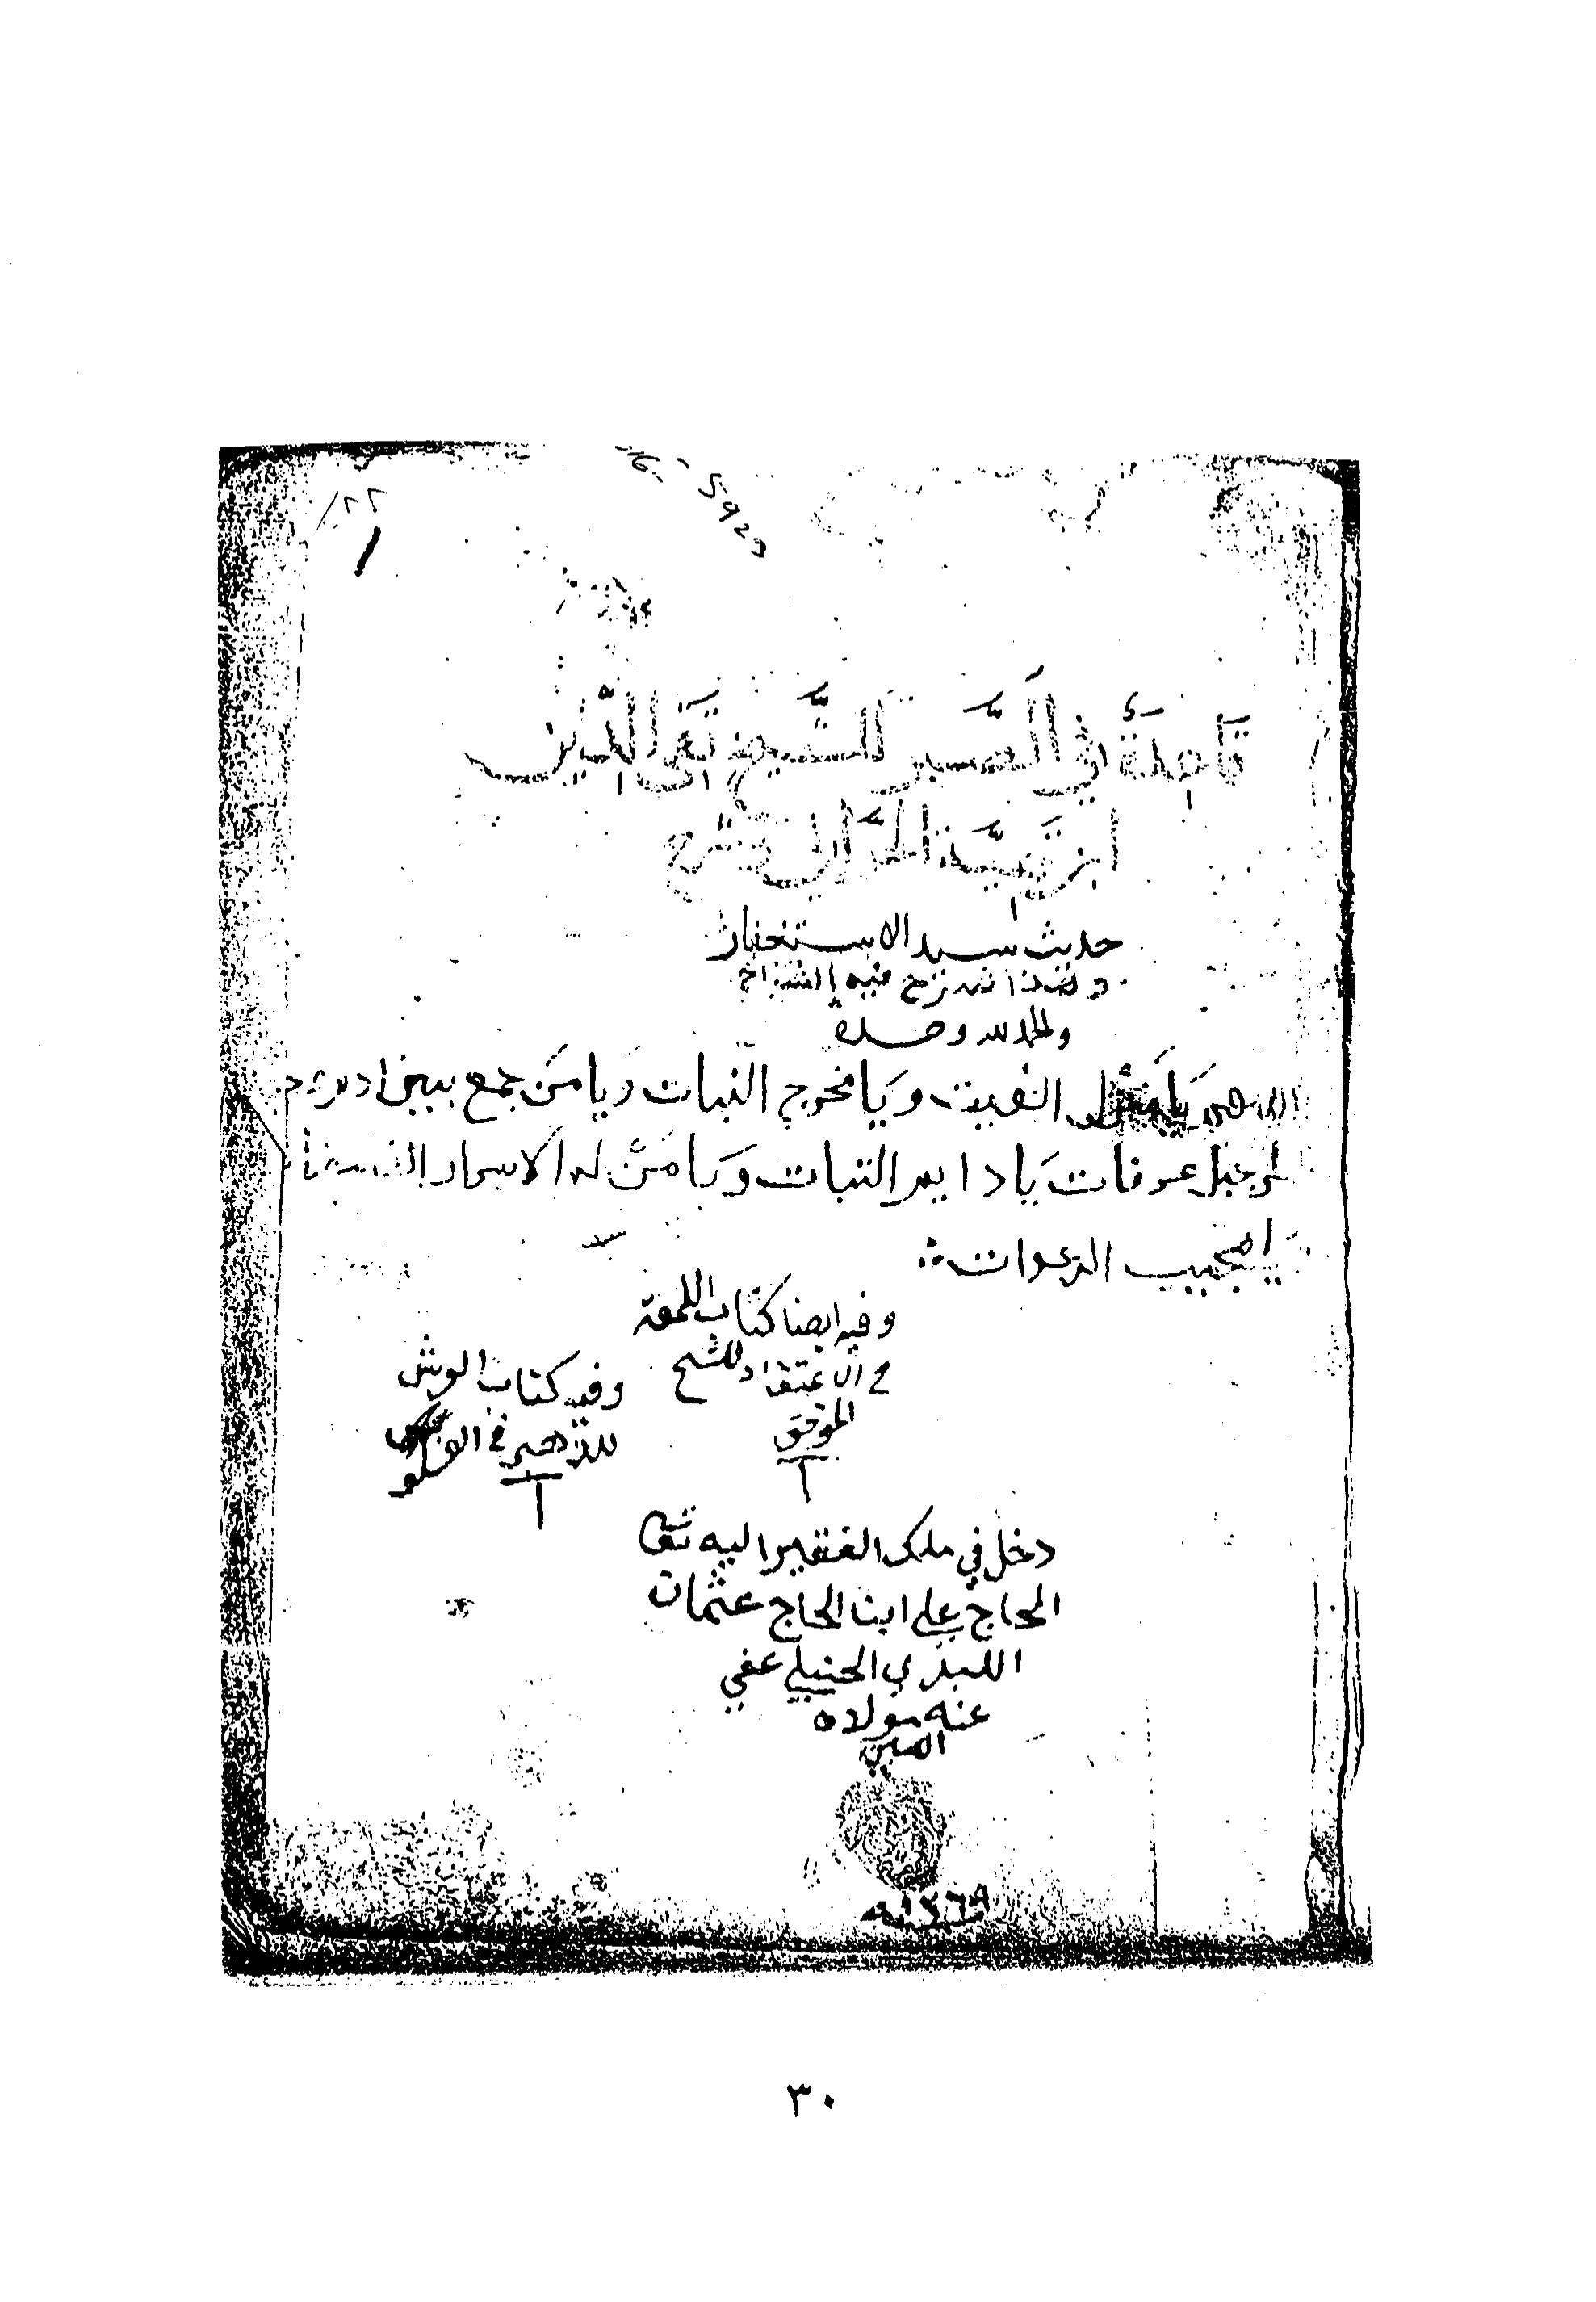 ١٢٢
5923
قَاعِدَةٌ في الصَّبر للشَّيخ تَقي الدِّين
ابن تَيميَّة الحرَّاني وشرح
حديث سيد الاستغفار
والحمد لله وحده
اللهم يَا منزل الغيث ويَا مخرج النَّبات ويا من جمع بين
جبل عرفات يَا دايم الثبات ويَا مَن له الاسما
يا مجيب الدعوات
وفيه ايضا كتاب اللمعة
في الاعتقاد للشيخ
الموفق
وفيه كتاب
في
دخل في ملك الفقير اليه تعا
الحاج علي ابن الحاج عثمان
اللبدي الحنبلي عفي
عنه مولاه
المبين
٣٠